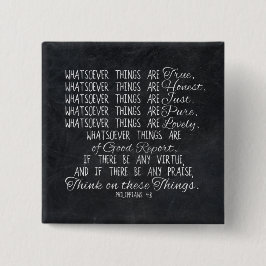 WHATSOEVER THINGS ARE True,
WHATSOEVER THINGS ARE Honest,
WHATSOEVER THINGS ARE Just,
WHATSOEVER THINGS ARE Pure,
WHATSOEVER THINGS ARE Lovely,
WHATSOEVER THINGS ARE
of Good Report,
IF THERE BE ANY VIRTUE,
AND IF THERE BE ANY PRAISE,
Think on these Things.
PHILIPPIANS 4:8